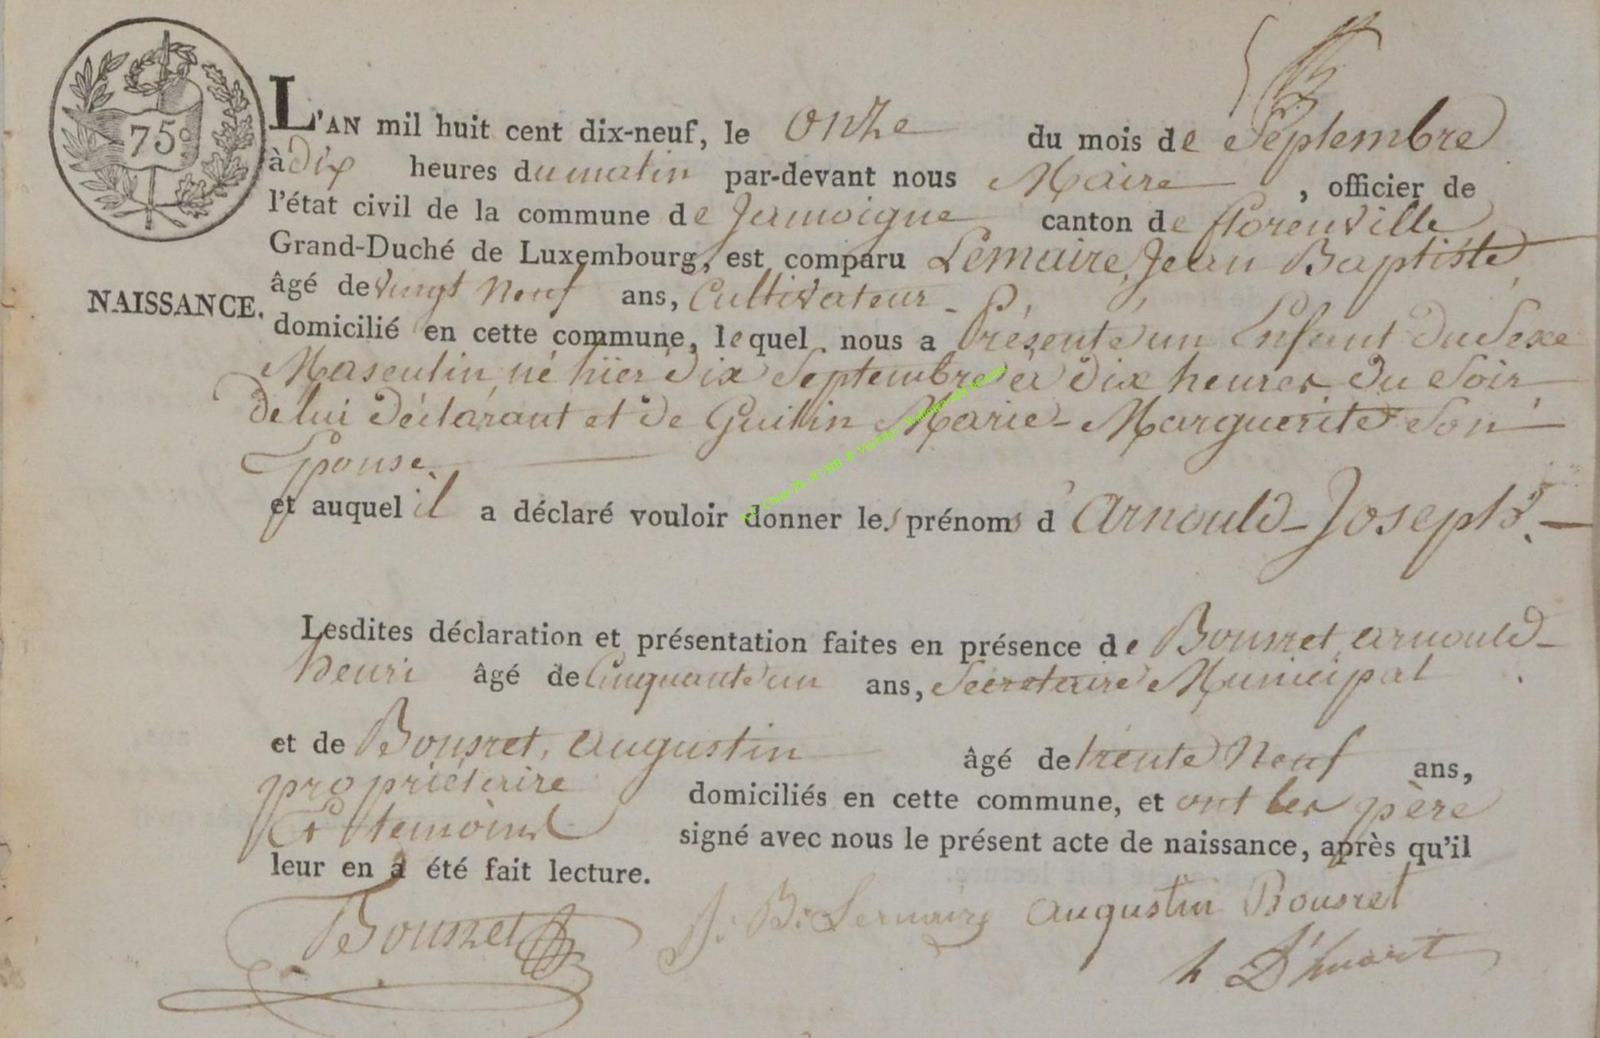 75c
L'AN mil huit cent dix-neuf, le onze du mois de Septembre
à dix heures du matin par-devant nous Maire, officier de
l'état civil de la commune de Jamoigne canton de florenville
Grand-Duché de Luxembourg, est comparu Lemaire, Jean Baptiste
NAISSANCE.
âgé de vingt neuf ans, Cultivateur
domicilié en cette commune, lequel nous a Présenté un Enfant du Sexe
Masculin né hier dix Septembre à dix heures du Soir
de lui déclarant et de Marie-Marguerite Son
Epouse
et auquel il a déclaré vouloir donner les prénoms d'Arnould-Joseph.
Lesdites déclaration et présentation faites en présence de arnould-
henri âgé de Cinquante un ans, Secretaire Municipal
et de augustin âgé de trente Neuf ans,
propriétaire domiciliés en cette commune, et ont les père
Et temoins signé avec nous le présent acte de naissance, après qu'il
leur en a été fait lecture.
J. B. Lemaire augustin